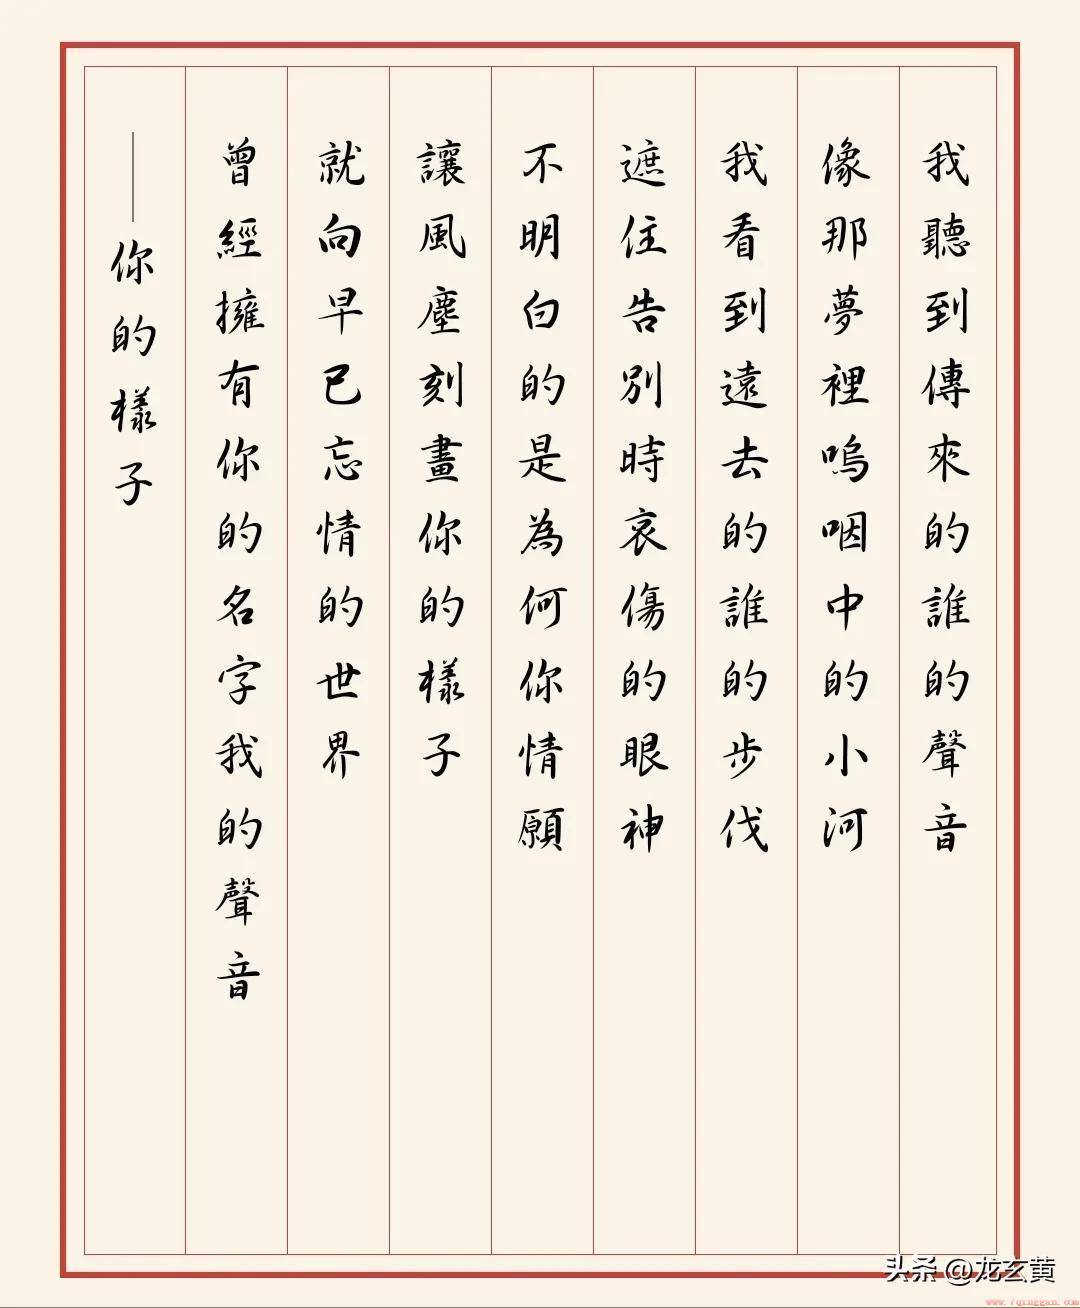 我聽到傳來的誰的聲音
像那夢裡嗚咽中的小河
我看到遠去的誰的步伐
遮住告別時哀傷的眼神
不明白的是為何你情願
讓風塵刻畫你的樣子
就向早已忘情的世界
曾經擁有你的名字我的聲音
——你的樣子
头条 @龙玄黄
www.7qinggan.com